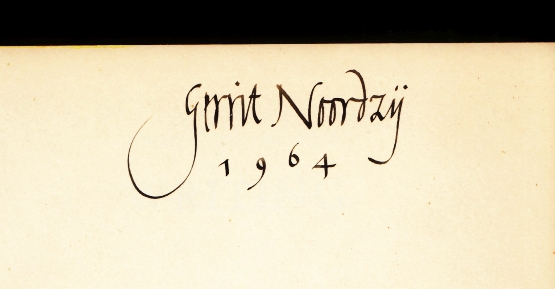 Gerrit Noordzij
1964